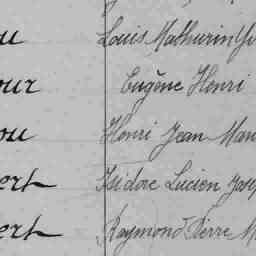 u Louis Mathurin Yv
our Eugène Henri
ou Henri Jean Mar
ert Isidore Lucien Jose
ert Raymond Pierre M